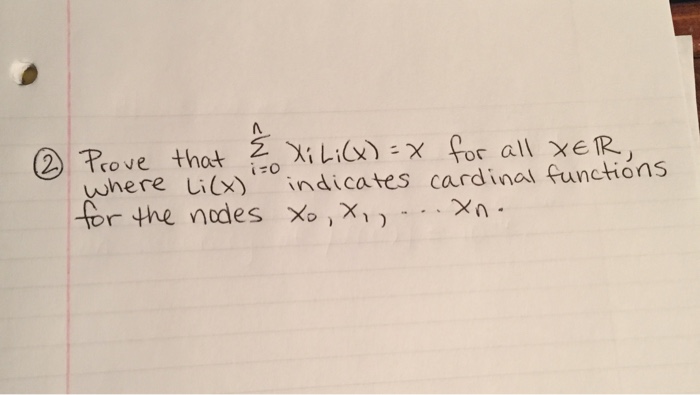 ② Prove that $\sum_{i=0}^{n} x_i L_i(x) = x$ for all $x \in \mathbb{R}$,
where $L_i(x)$ indicates cardinal functions
for the nodes $x_0, x_1, \ldots x_n$.